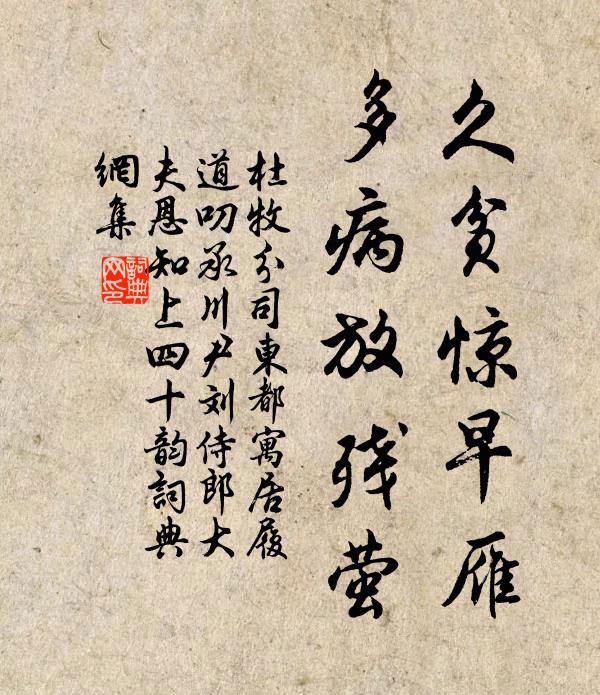 久贫惊早雁
多病放残萤
杜牧分司東都寓居履
道叨承川尹刘侍郎大
夫恩知上四十韵詞典
網集
詞典網印